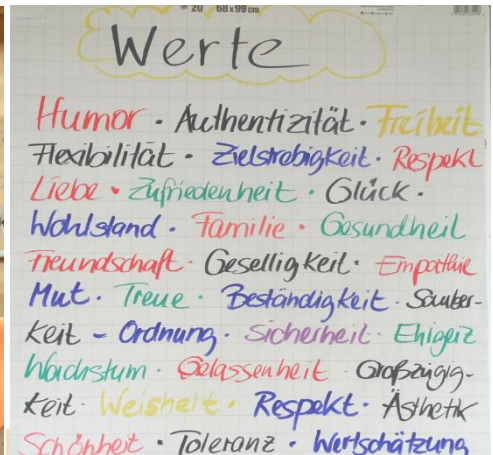 20 68x99 cm
Werte
Humor · Authentizität · Freiheit
Flexibilität · Zielstrebigkeit · Respekt
Liebe · Zufriedenheit · Glück ·
Wohlstand · Familie · Gesundheit
Freundschaft · Geselligkeit · Empathie
Mut · Treue · Beständigkeit · Sauber-
keit - Ordnung · Sicherheit · Ehrgeiz
Wachstum · Gelassenheit Großzügig-
keit · Weisheit · Respekt · Ästhetik
Schönheit · Toleranz · Wertschätzung